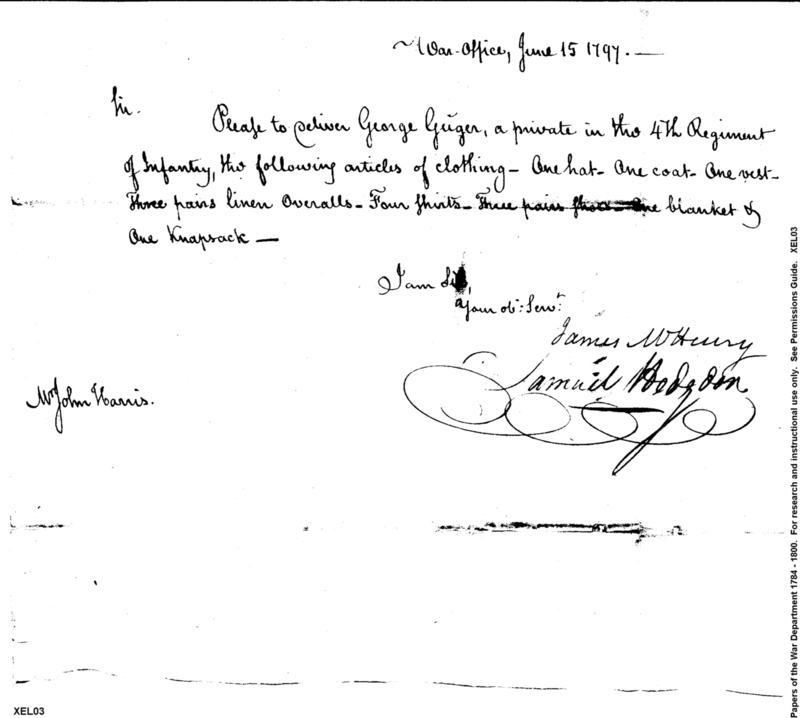 War-Office, June 15 1797.—
Sir.
Please to deliver George Guger, a private in the 4th Regiment
of Infantry, the following articles of clothing – One hat – One coat – One vest –
Three pairs linen Overalls – Four shirts – Three pairs shoes – One blanket &
One Knapsack —
I am Sir,
Your ob: Servt
James McHenry
Samuel Hodgdon
Mr John Harris.
XEL03
Papers of the War Department 1784 - 1800. For research and instructional use only. See Permissions Guide. XEL03